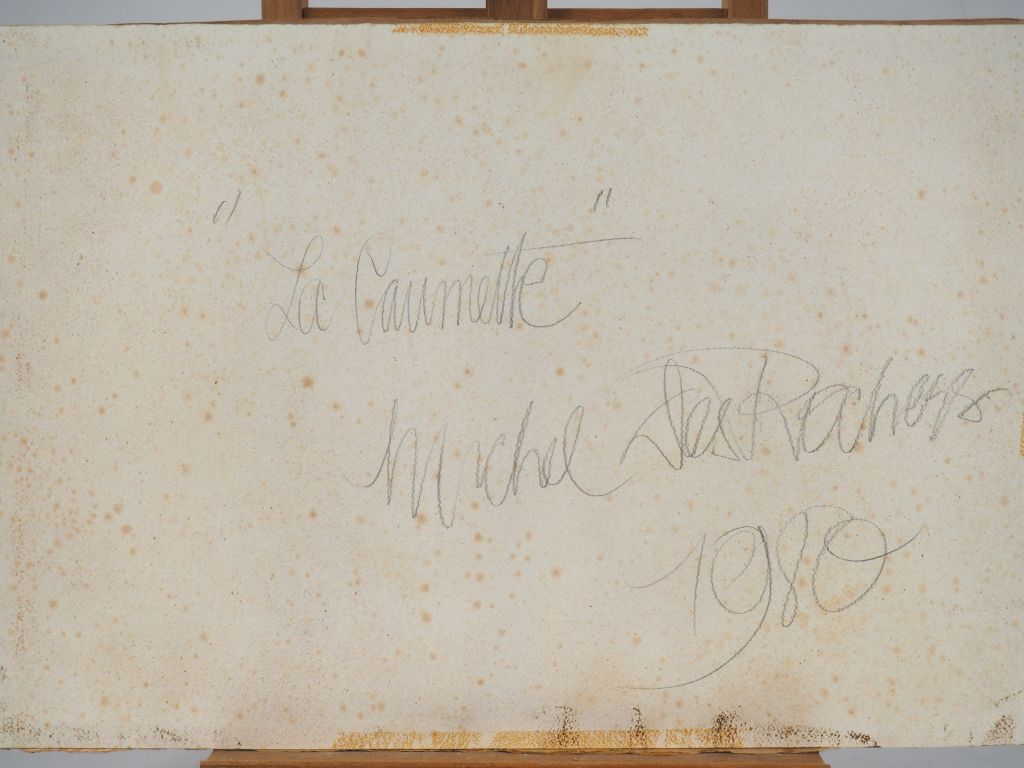 "La Caumette"
Michel DesRochers
1980